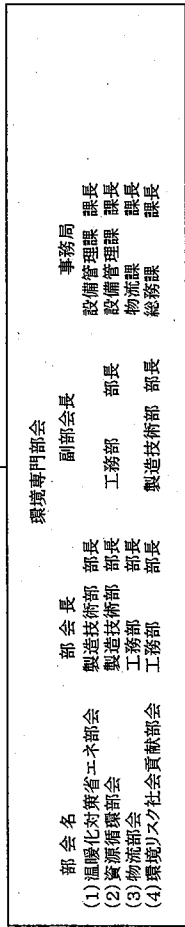 環境専門部会
部会名 部会長 副部会長 事務局
(1)温暖化対策省エネ部会 製造技術部 部長 設備管理課 課長
(2)資源循環部会 製造技術部 部長 工務部 部長 設備管理課 課長
(3)物流部会 工務部 部長 物流課 課長
(4)環境リスク社会貢献部会 工務部 部長 製造技術部 部長 総務課 課長